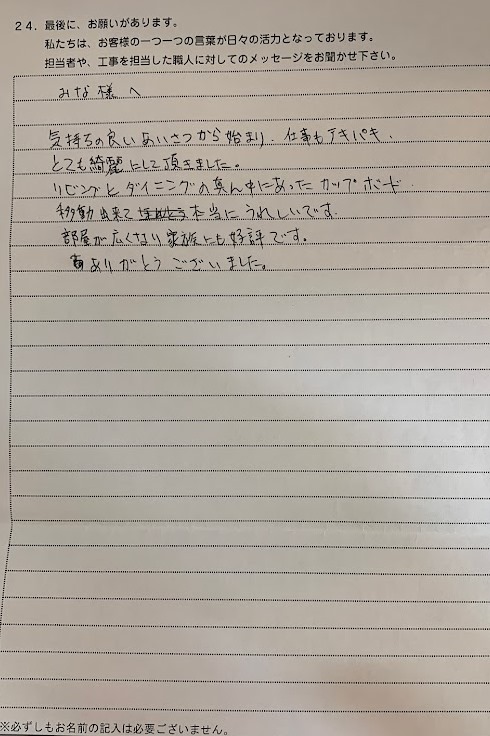 24．最後に、お願いがあります。
私たちは、お客様の一つ一つの言葉が日々の活力となっております。
担当者や、工事を担当した職人に対してのメッセージをお聞かせ下さい。
みな様へ
気持ちの良いあいさつから始まり、仕事もテキパキ、
とても綺麗にして頂きました。
リビングとダイニングの真ん中にあったカップボード
移動出来て本当にうれしいです。
部屋が広くなり家族にも好評です。
ありがとうございました。
※必ずしもお名前の記入は必要ございません。